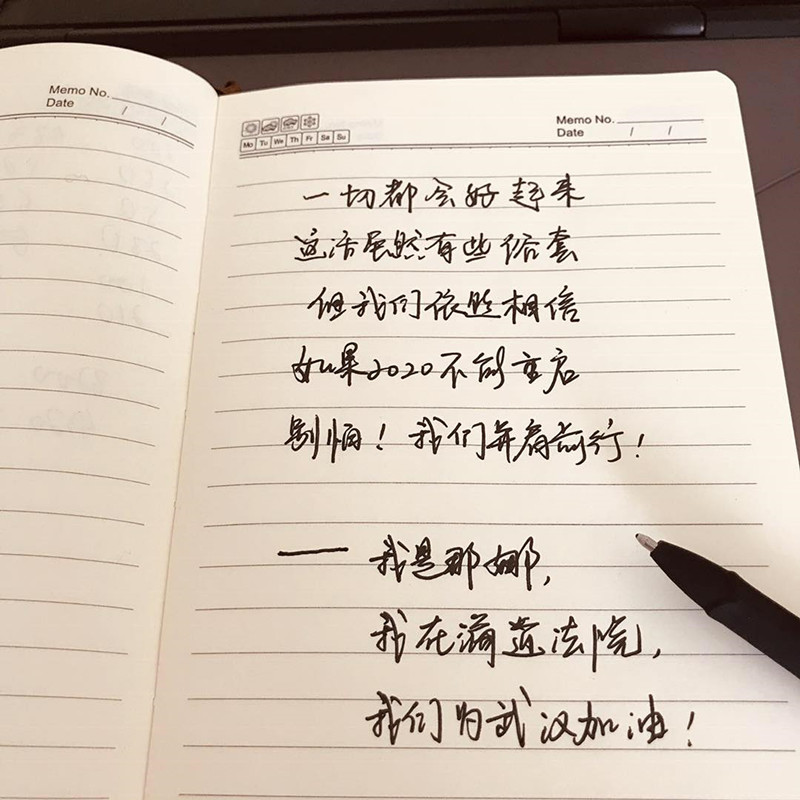 Memo No.
Date / /
Memo No.
Date / /
Mo Tu We Th Fr Sa Su
一切都会好起来
这话虽然有些俗套
但我们依然相信
如果2020不能重启
别怕！我们并肩前行！
——我是那娜，
我在浦道法院，
我们为武汉加油！